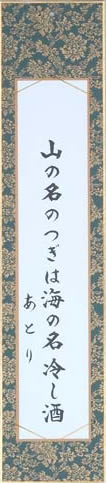 山の名のつぎは海の名冷し酒
あとり